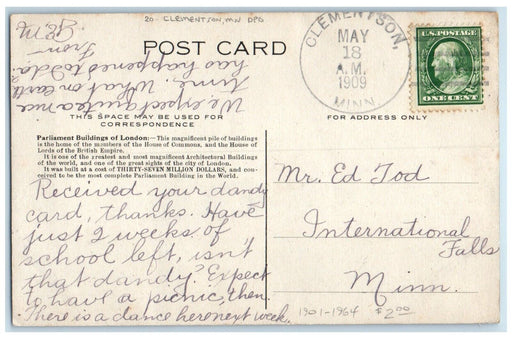 20- CLEMENTSON, MN DPO
POST CARD
CLEMENTSON,
MAY
18
A.M.
1909
MINN.
U.S. POSTAGE
ONE CENT
THIS SPACE MAY BE USED FOR
CORRESPONDENCE
FOR ADDRESS ONLY
Parliament Buildings of London:—This magnificent pile of buildings
is the home of the members of the House of Commons, and the House of
Lords of the British Empire.
It is one of the greatest and most magnificent Architectural Buildings
of the world, and one of the great sights of the city of London.
It was built at a cost of THIRTY-SEVEN MILLION DOLLARS, and con-
ceived to be the most complete Parliament Building in the World.
Received your dandy
card, thanks. Have
just 2 weeks of
school left, isn't
that dandy? Expect
to have a picnic, then.
There is a dance here next week.
We expect quite a nice
time. What on earth
has happened to Ida?
From
Mr. Ed Tod
International
Falls
Minn.
1901-1964 $2.00